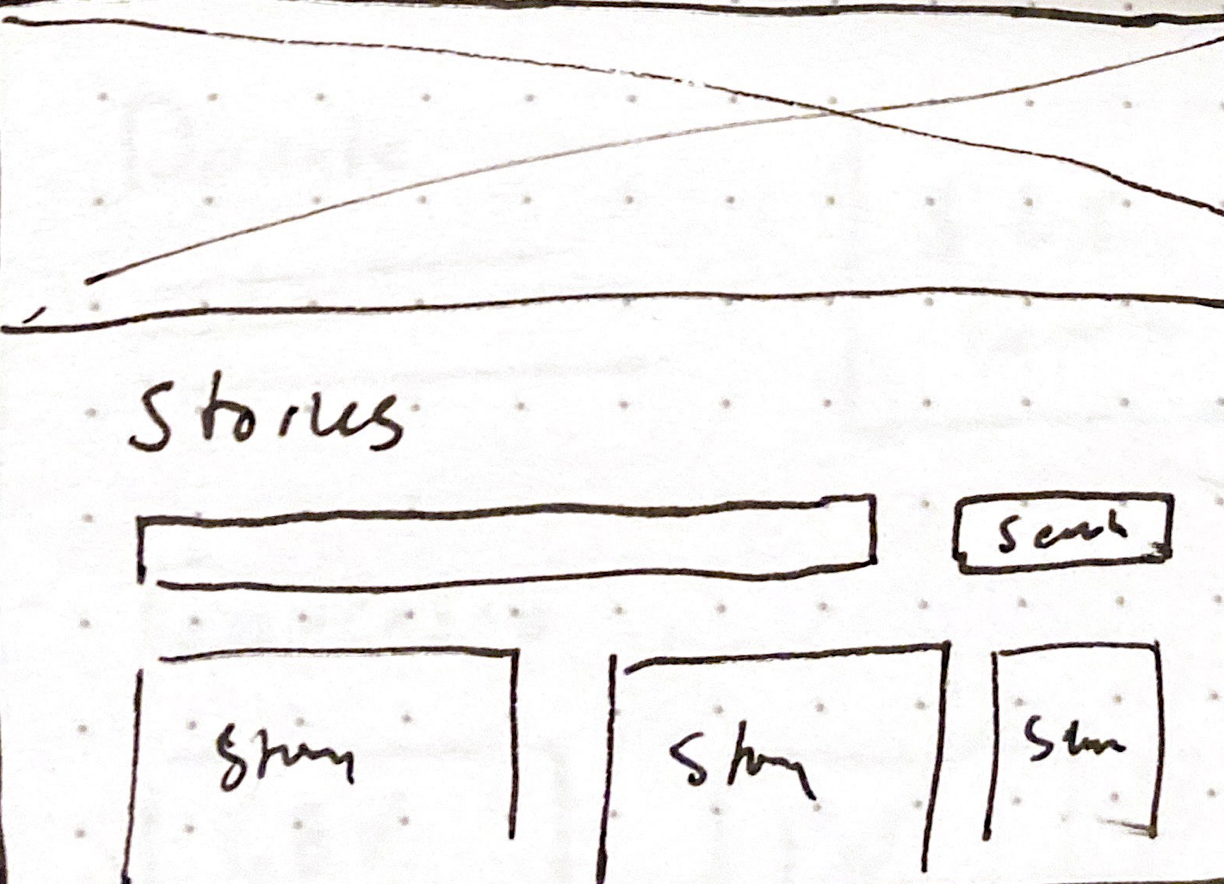 Stories
Search
Story Story